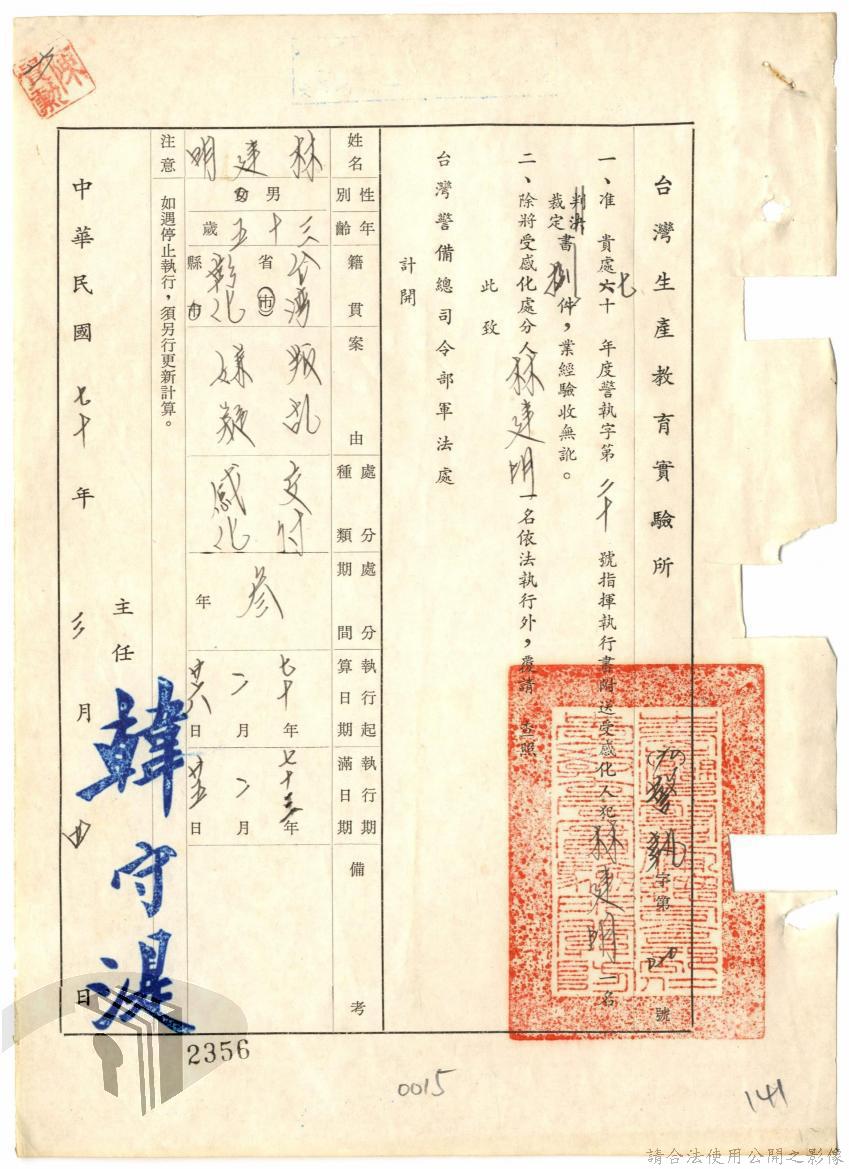 台灣生產教育實驗所
警執字第號
一、准 貴處六十七年度警執字第二十號指揮執行書附送受感化人犯林建明一名
判決
裁定書捌件，業經驗收無訛。
二、除將受感化處分人林建明一名依法執行外，覆請 查照
此致
台灣警備總司令部軍法處
計開
姓名 性別 年齡 籍貫 案由 處分種類 處分期間 執行起算日期 執行期滿日期 備考
林建明 男女 三十五歲 台灣省市彰化縣市 叛乱嫌疑 交付感化 參年 七十年二月廿六日 七十三年二月廿五日
注意 如遇停止執行，須另行更新計算。
主任 韓守湜
中華民國七十年三月四日
2356
0015
141
請合法使用公開之影像